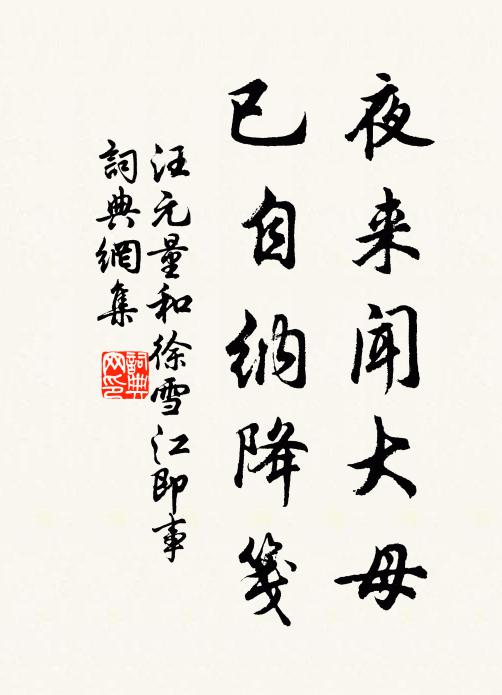 夜来闻大母
已自纳降笺
汪元量和徐雪江即事
詞典網集
詞典网印